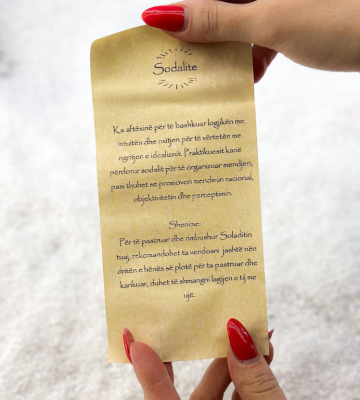 Sodalite
Ka aftësinë për të bashkuar logjikën me
intuitën dhe rritjen për të vërtetën me
ngritjen e idealizmit. Praktikuesit kanë
përdorur sodalit për të organizuar mendjen,
pasi thuhet se promovon mendimin racional,
objektivitetin dhe perceptimin.
Shënime:
Për të pastruar dhe rimbushur Soladitin
tuaj, rekomandohet ta vendosni jashtë nën
dritën e hënës së plotë për ta pastruar dhe
karikuar, duhet të shmangni lagjjen e tij me
ujë.